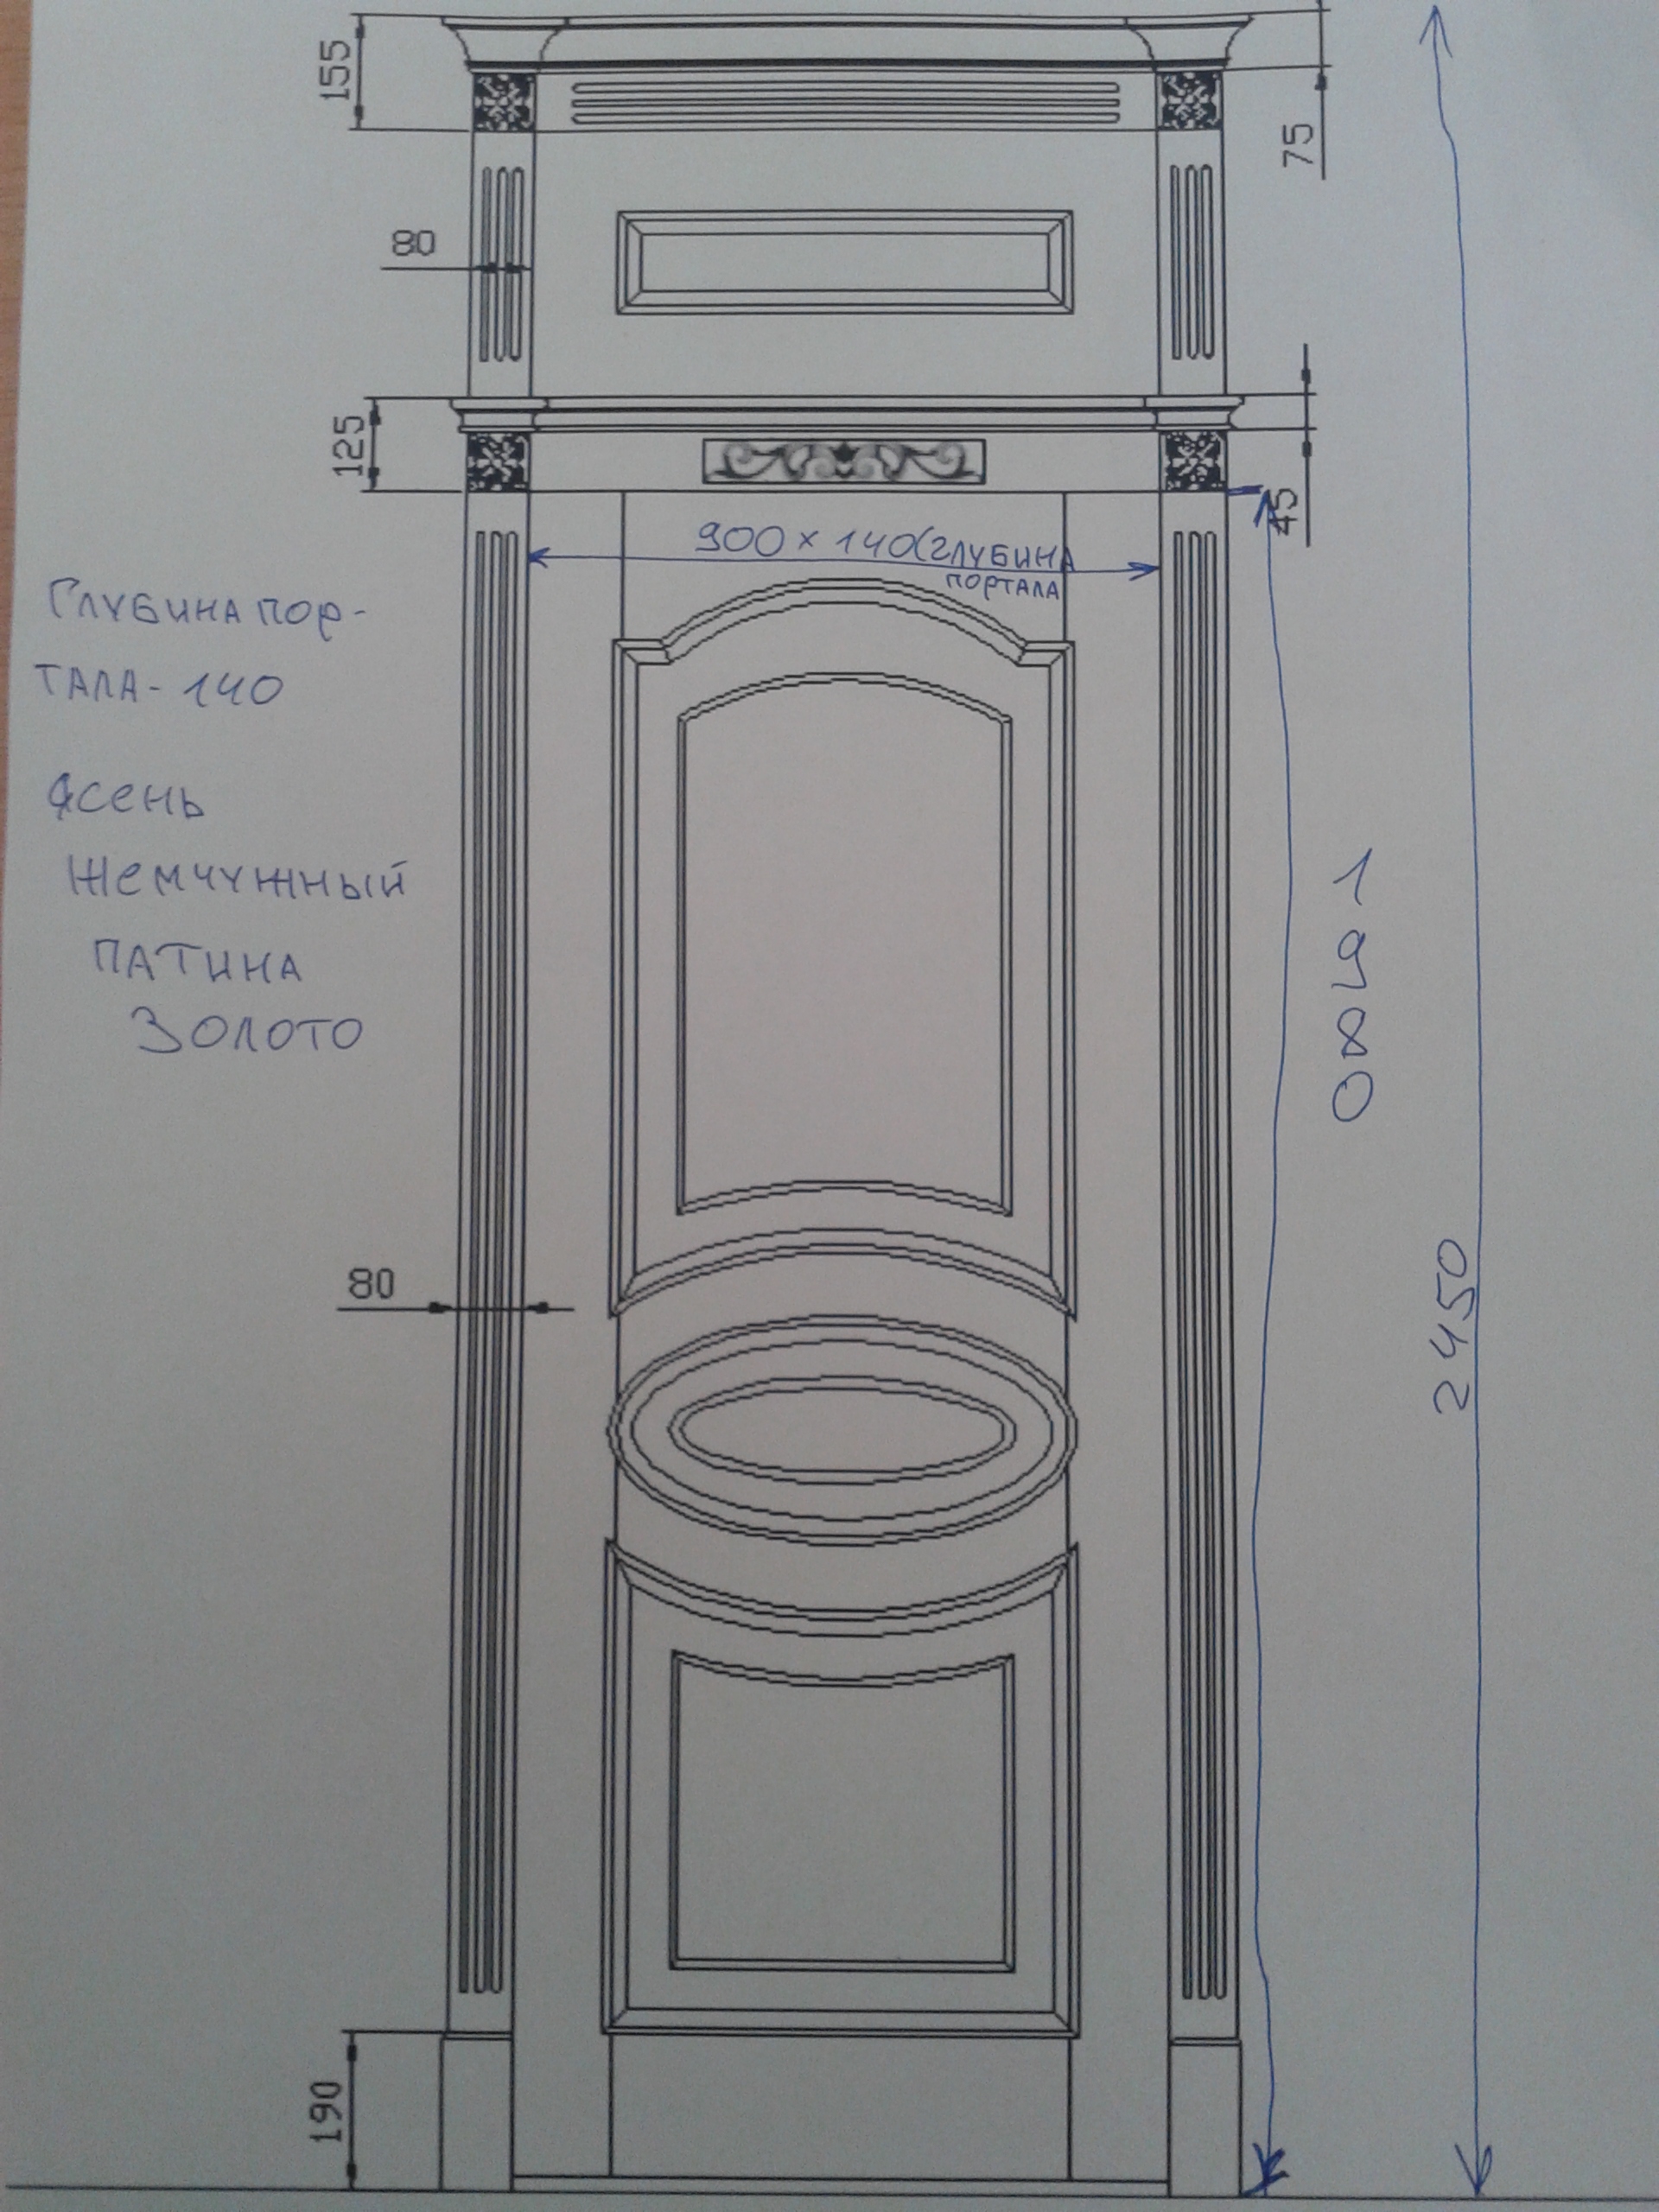 155
75
80
125
45
900 × 140(глубина
портала
Глубина пор-
тала - 140
Ясень
Жемчужный
патина
золото
1980
2450
80
190